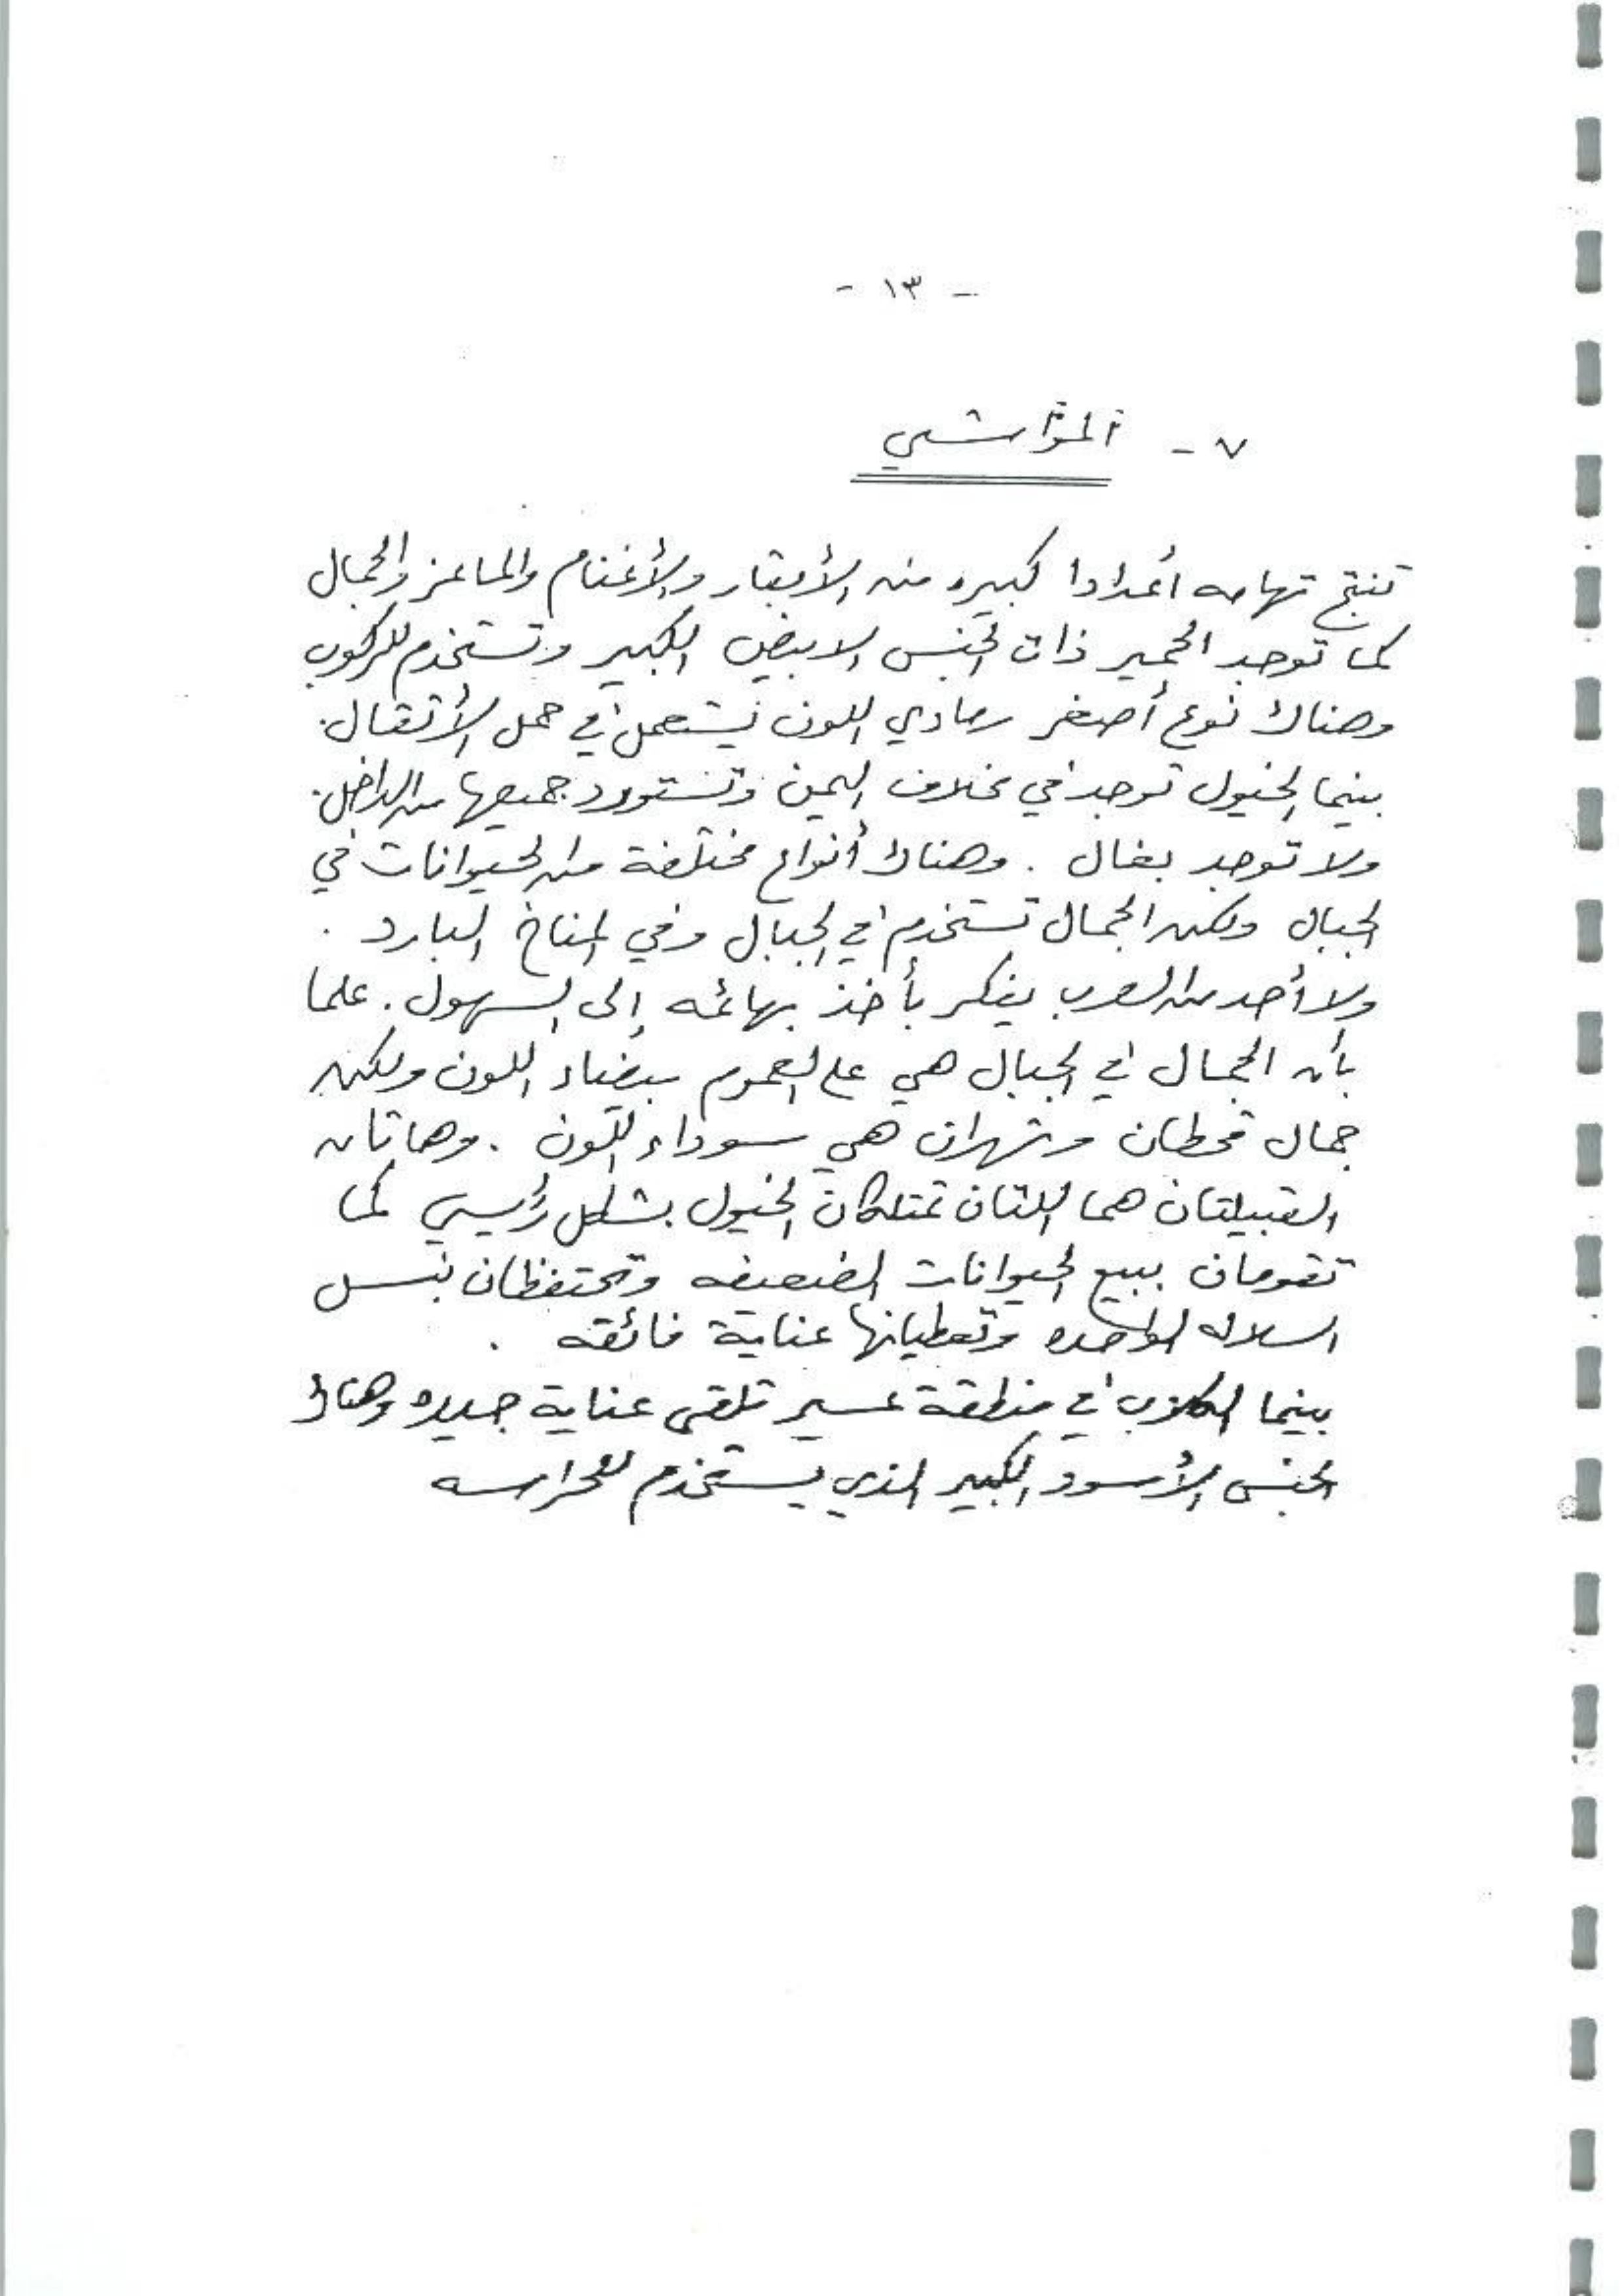 - ١٣ -
٧ - المواشي
تنتج تهامه أعدادا كبيره من الأبقار والأغنام والماعز والجمال
كما توجد الحمير ذات الجنس الابيض الكبير وتستخدم للركوب
وهناك نوع أصغر رمادي اللون يستعمل في حمل الأثقال.
بينما الخيول توجد في مخلاف اليمن وتستورد جميعها من الداخل.
ولا توجد بغال . وهناك أنواع مختلفة من الحيوانات في
الجبال ولكن الجمال تستخدم في الجبال وفي المناخ البارد .
ولا أحد من العرب يفكر بأخذ بهائمه إلى السهول . علما
بأن الجمال في الجبال هي على العموم بيضاء اللون ولكن
جمال قحطان وشهران هي سوداء اللون . وهاتان
القبيلتان هما اللتان تمتلكان الخيول بشكل رئيسي كما
تقومان ببيع الحيوانات الضعيفه وتحتفظان بنسل
السلاله الواحده وتعطيانها عناية فائقه .
بينما الكلاب في منطقة عسير تلقى عناية جيده وهناك
الجنس الأسود الكبير الذي يستخدم للحراسه